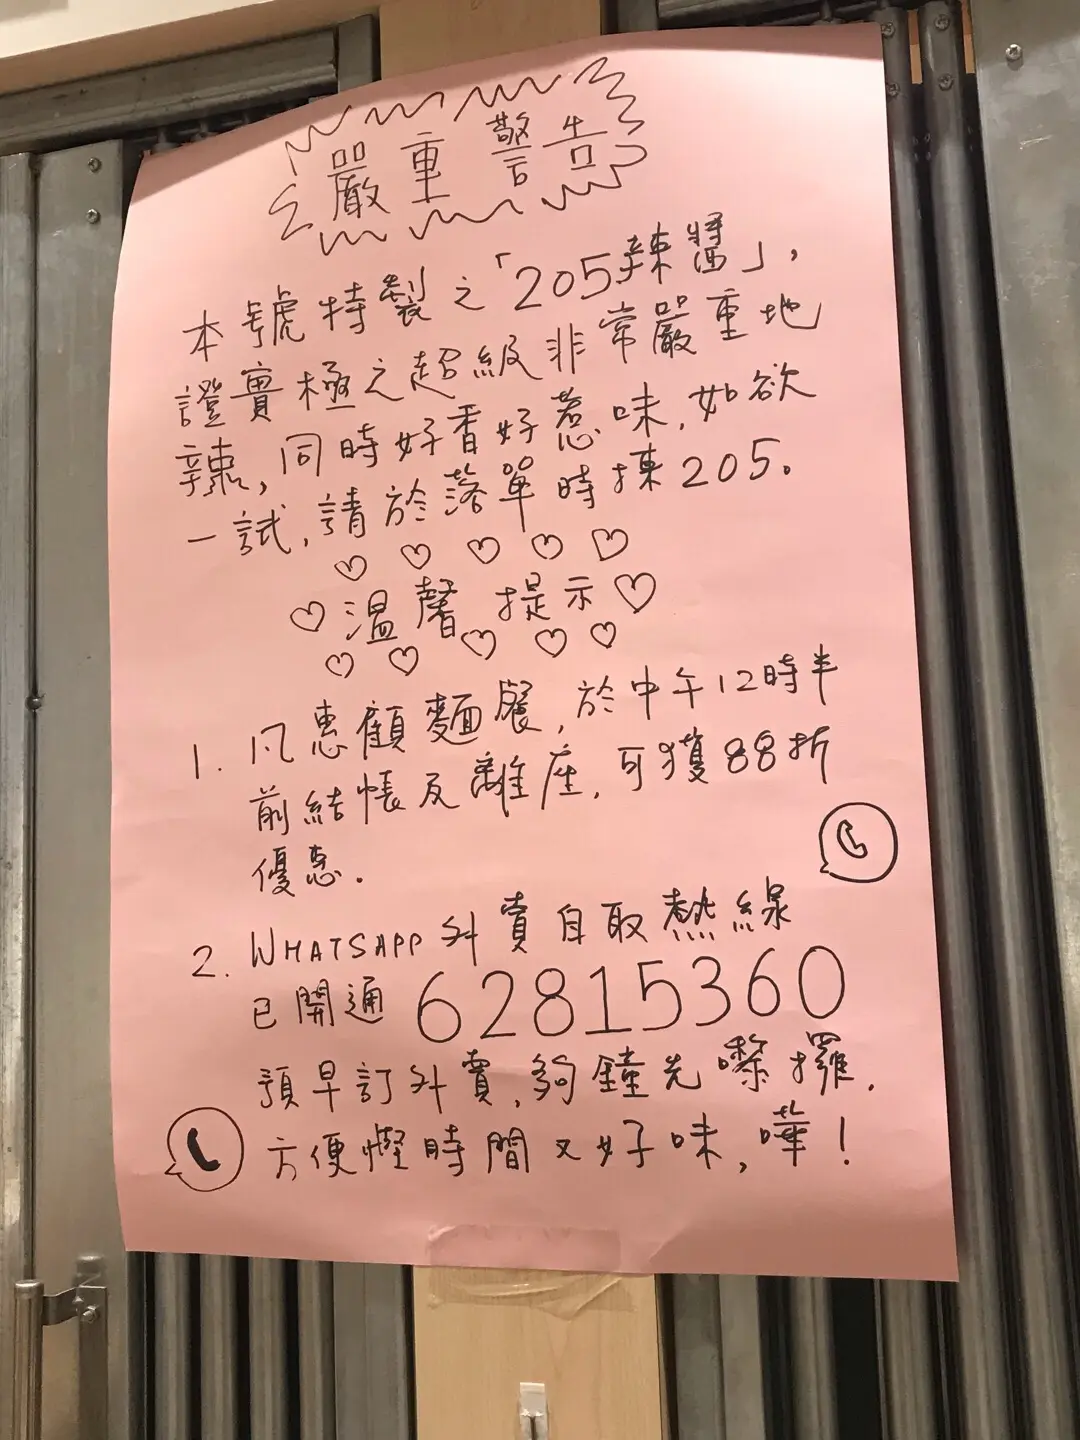 嚴重警告
本號特製之「205辣醬」,
證實極之超級非常嚴重地
辣,同時好香好惹味,如欲
一試,請於落單時揀205。
溫馨提示
1. 凡惠顧麵餐,於中午12時半
前結帳及離座,可獲88折
優惠.
2. WHATSAPP 外賣自取熱線
已開通 62815360
預早訂外賣,夠鐘先嚟攞,
方便慳時間又好味,嘩!